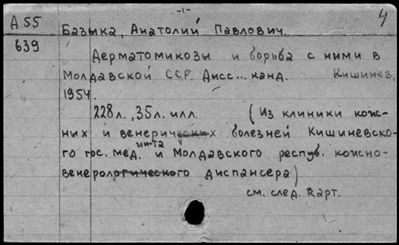 -1-
4
А 55
Базыка, Анатолий Павлович.
639
Дерматомикозы и борьба с ними в
Молдавской ССР. Дисс... канд. Кишинев,
1954.
228л., 35л. илл. (Из клиники кож-
ных и венерических болезней Кишиневско-
го гос. мед. ин-та и Молдавского респуб. кожно-
венерологического диспансера)
см. след. карт.